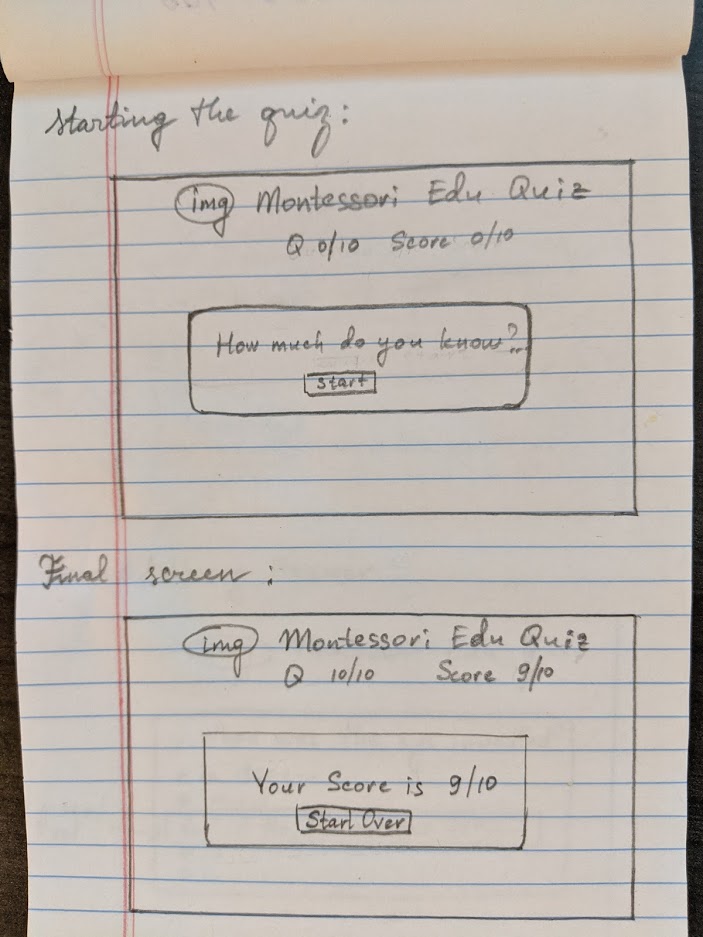 Starting the quiz:
img Montessori Edu Quiz
Q 0/10 Score 0/10
How much do you know?
Start
Final screen:
img Montessori Edu Quiz
Q 10/10 Score 9/10
Your Score is 9/10
Start Over